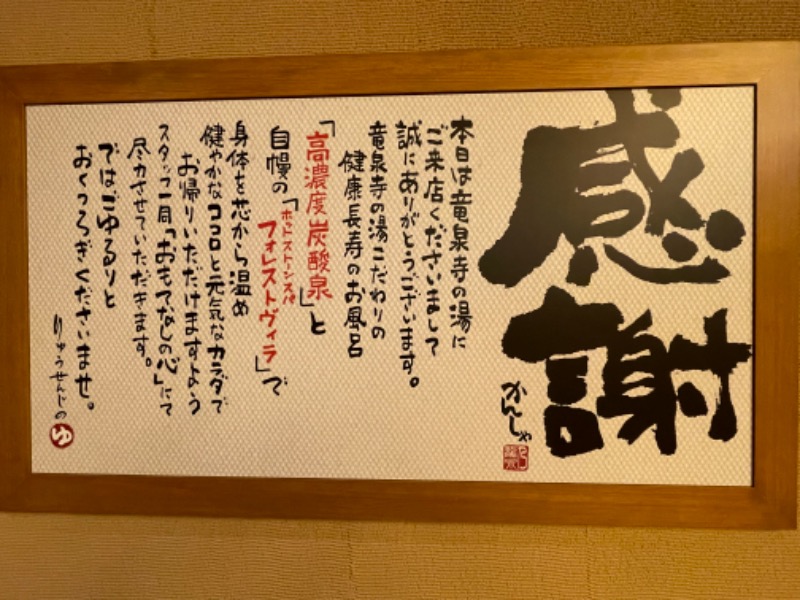 感謝
かんしゃ
本日は竜泉寺の湯に
ご来店くださいまして
誠にありがとうございます。
竜泉寺の湯こだわりの
健康長寿のお風呂
「高濃度炭酸泉」と
自慢の「ホットストーンスパ フォレストヴィラ」で
身体を芯から温め
健やかなココロと元気なカラダで
お帰りいただけますよう
スタッフ一同「おもてなしの心」にて
尽力させていただきます。
ではごゆるりと
おくつろぎくださいませ。
りゅうせんじの ゆ